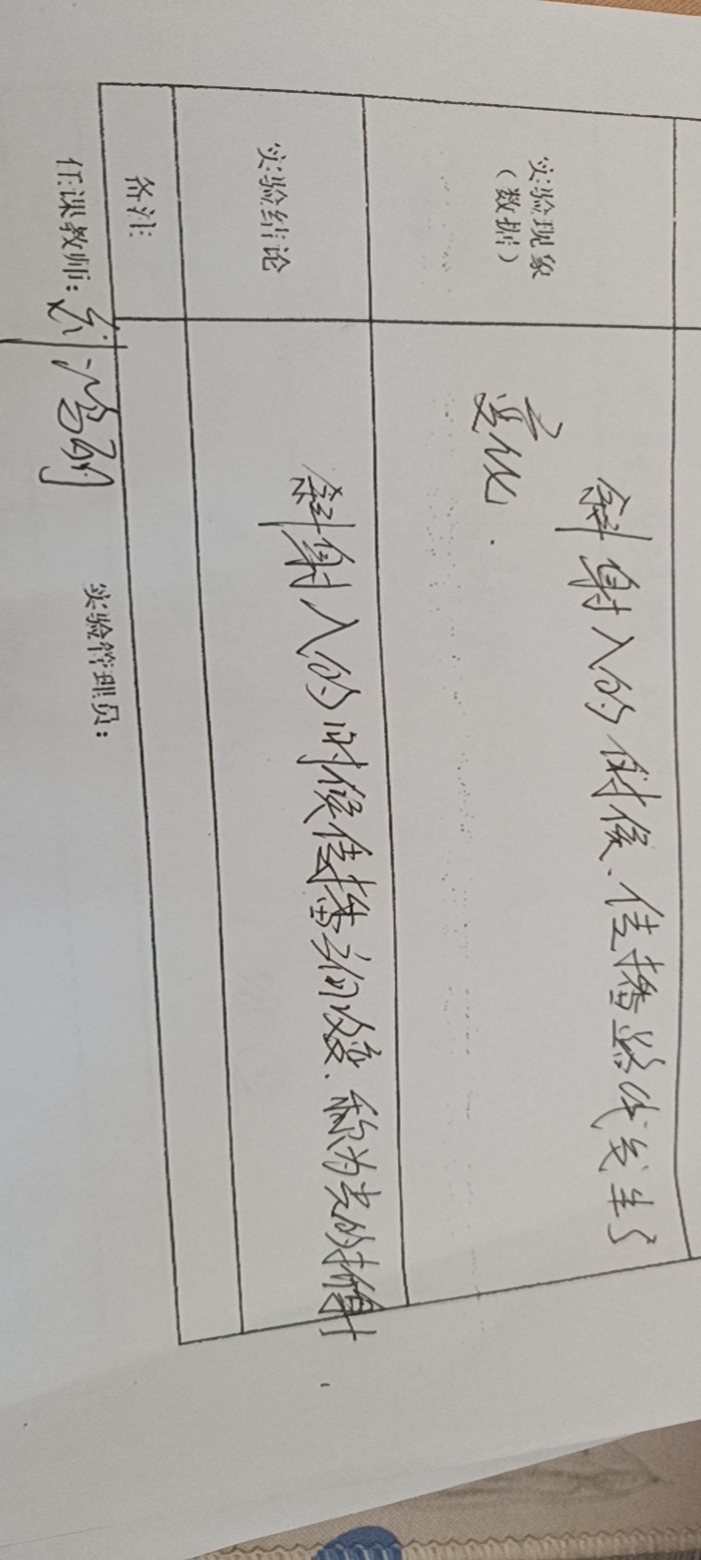 实验现象
（数据）
斜射入的时候、传播路线发生了
变化.
实验结论
斜射入的时候传播方向改变、称为光的折射.
备注:
任课教师：
实验管理员：